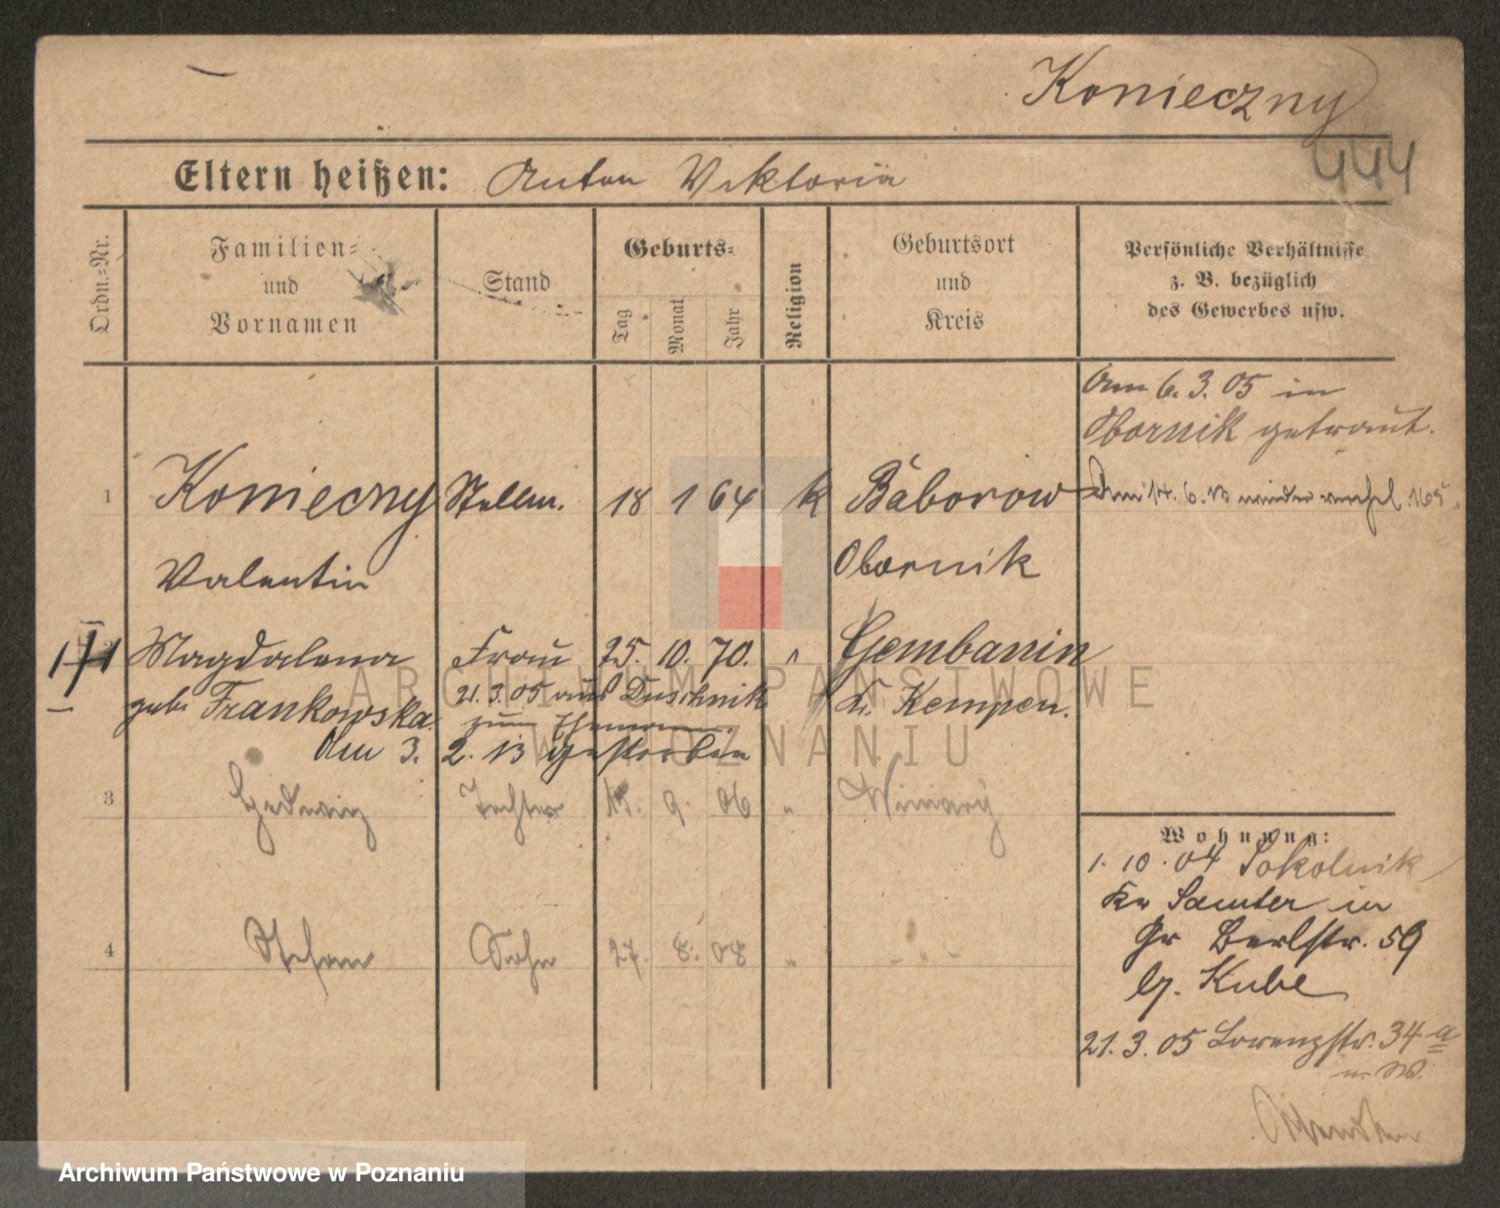 Konieczny
444
Eltern heißen: Anton Viktoria
Ordn.=Nr.
Familien=
und
Vornamen
Stand
Geburts=
Tag
Monat
Jahr
Religion
Geburtsort
und
Kreis
Persönliche Verhältnisse
z. B. bezüglich
des Gewerbes usw.
Am 6. 3. 05 in
Obornik getraut.
1 Konieczny Stellm. 18 1 64 k Bäborow
Am 14. 6. 13 wieder verehel.
Valentin
Obornik
Magdalena Frau 25. 10. 70. " Gembanin
geb. Frankowska
21. 3. 05 aus Duschnik
K. Kempen.
zum Ehemann.
Am 3. 2. 13 gestorben
3 Hedwig Tochter 15. 9. 06 " Winiary
4 Stefan Sohn 27. 8. 08 " - " -
Wohnung:
1. 10. 04 Sokolnik
Kr Samter in
Gr Berlstr. 59
b. Kube
21. 3. 05 Lorenzstr. 34 a
m. W.
ARCHIWUM PAŃSTWOWE
W POZNANIU
Archiwum Państwowe w Poznaniu